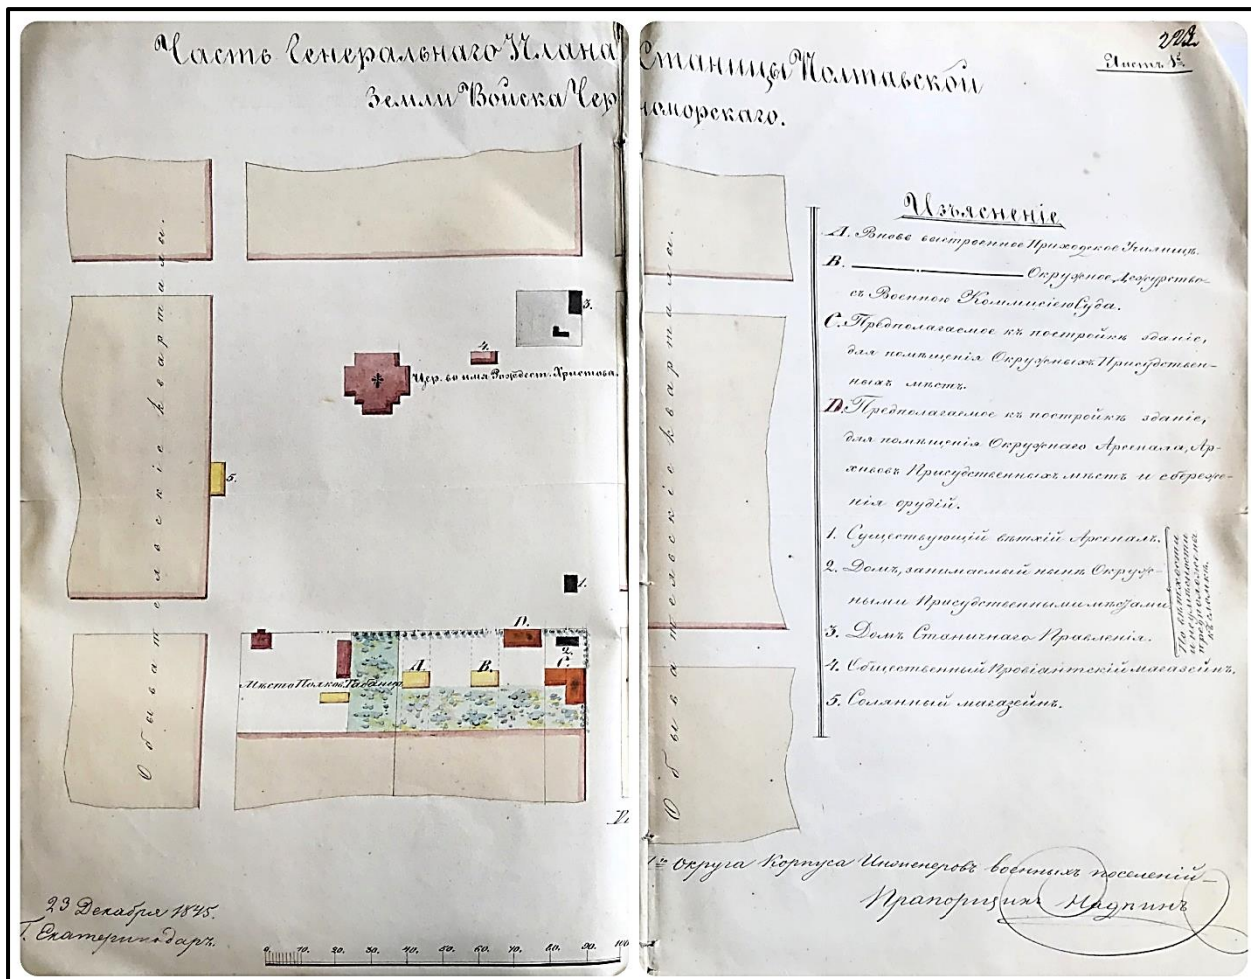 Часть Генеральнаго Плана Станицы Полтавской
Земли Войска Черноморскаго.
Листъ 1й
Обывательскіе кварталы.
3.
4.
Цер. во имя Рождест. Христова.
5.
1.
D.
2.
A.
B.
C.
Мѣсто Полков. Табанца
Обывательскіе кварталы.
Изъясненіе
A. Вновь выстроенное Приходское Училище.
B. Окружное Дежурство
съ Военною Коммисіею Суда.
C. Предполагаемое къ постройкѣ зданіе,
для помѣщенія Окружныхъ Присудствен-
ныхъ мѣстъ.
D. Предполагаемое къ постройкѣ зданіе,
для помѣщенія Окружнаго Арсенала, Ар-
хивовъ Присудственныхъ мѣстъ и сбереже-
нія орудій.
1. Существующій ветхій Арсеналъ.
2. Домъ, занимаемый нынѣ Окруж-
ными Присудственными мѣстами
По ветхости
предположена
къ сломкѣ.
3. Домъ Станичнаго Правленія.
4. Общественный Провіантскій магазейнъ.
5. Солянный магазейнъ.
Округа Корпуса Инженеровъ военныхъ поселеній
Прапорщикъ
23 Декабря 1845.
Г. Екатеринодаръ.
0. 10. 20. 30. 40. 50. 60. 70. 80. 90. 100